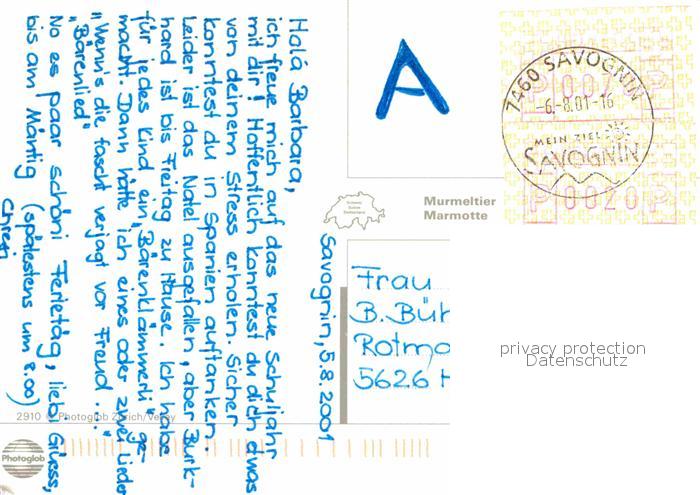 Savognin, 5.8.2001
Holá Barbara,
ich freue mich auf das neue Schuljahr
mit dir! Hoffentlich konntest du dich etwas
von deinem Stress erholen. Sicher
konntest du in Spanien auftanken.
Leider ist das Natel ausgefallen, aber Burk-
hard ist bis Freitag zu Hause. Ich habe
für jedes Kind ein „Bärenklämmerli" ge-
macht. Dann hätte ich eines oder zwei Lieder
„Wenn's die fascht verjagt vor Freud..."
„Bärenlied"
No es paar schöni Ferietäg, liebi Grüess,
bis am Mäntig (spätestens um 8.00)
A
7460 SAVOGNIN
-6.-8.01-16
MEIN ZIEL
SAVOGNIN
P 0020 P
Schweiz
Suisse
Switzerland
Murmeltier
Marmotte
Frau
B. Büh
Rotma
5626 H
privacy protection
Datenschutz
2910 © Photoglob Zürich/Vevey
Photoglob